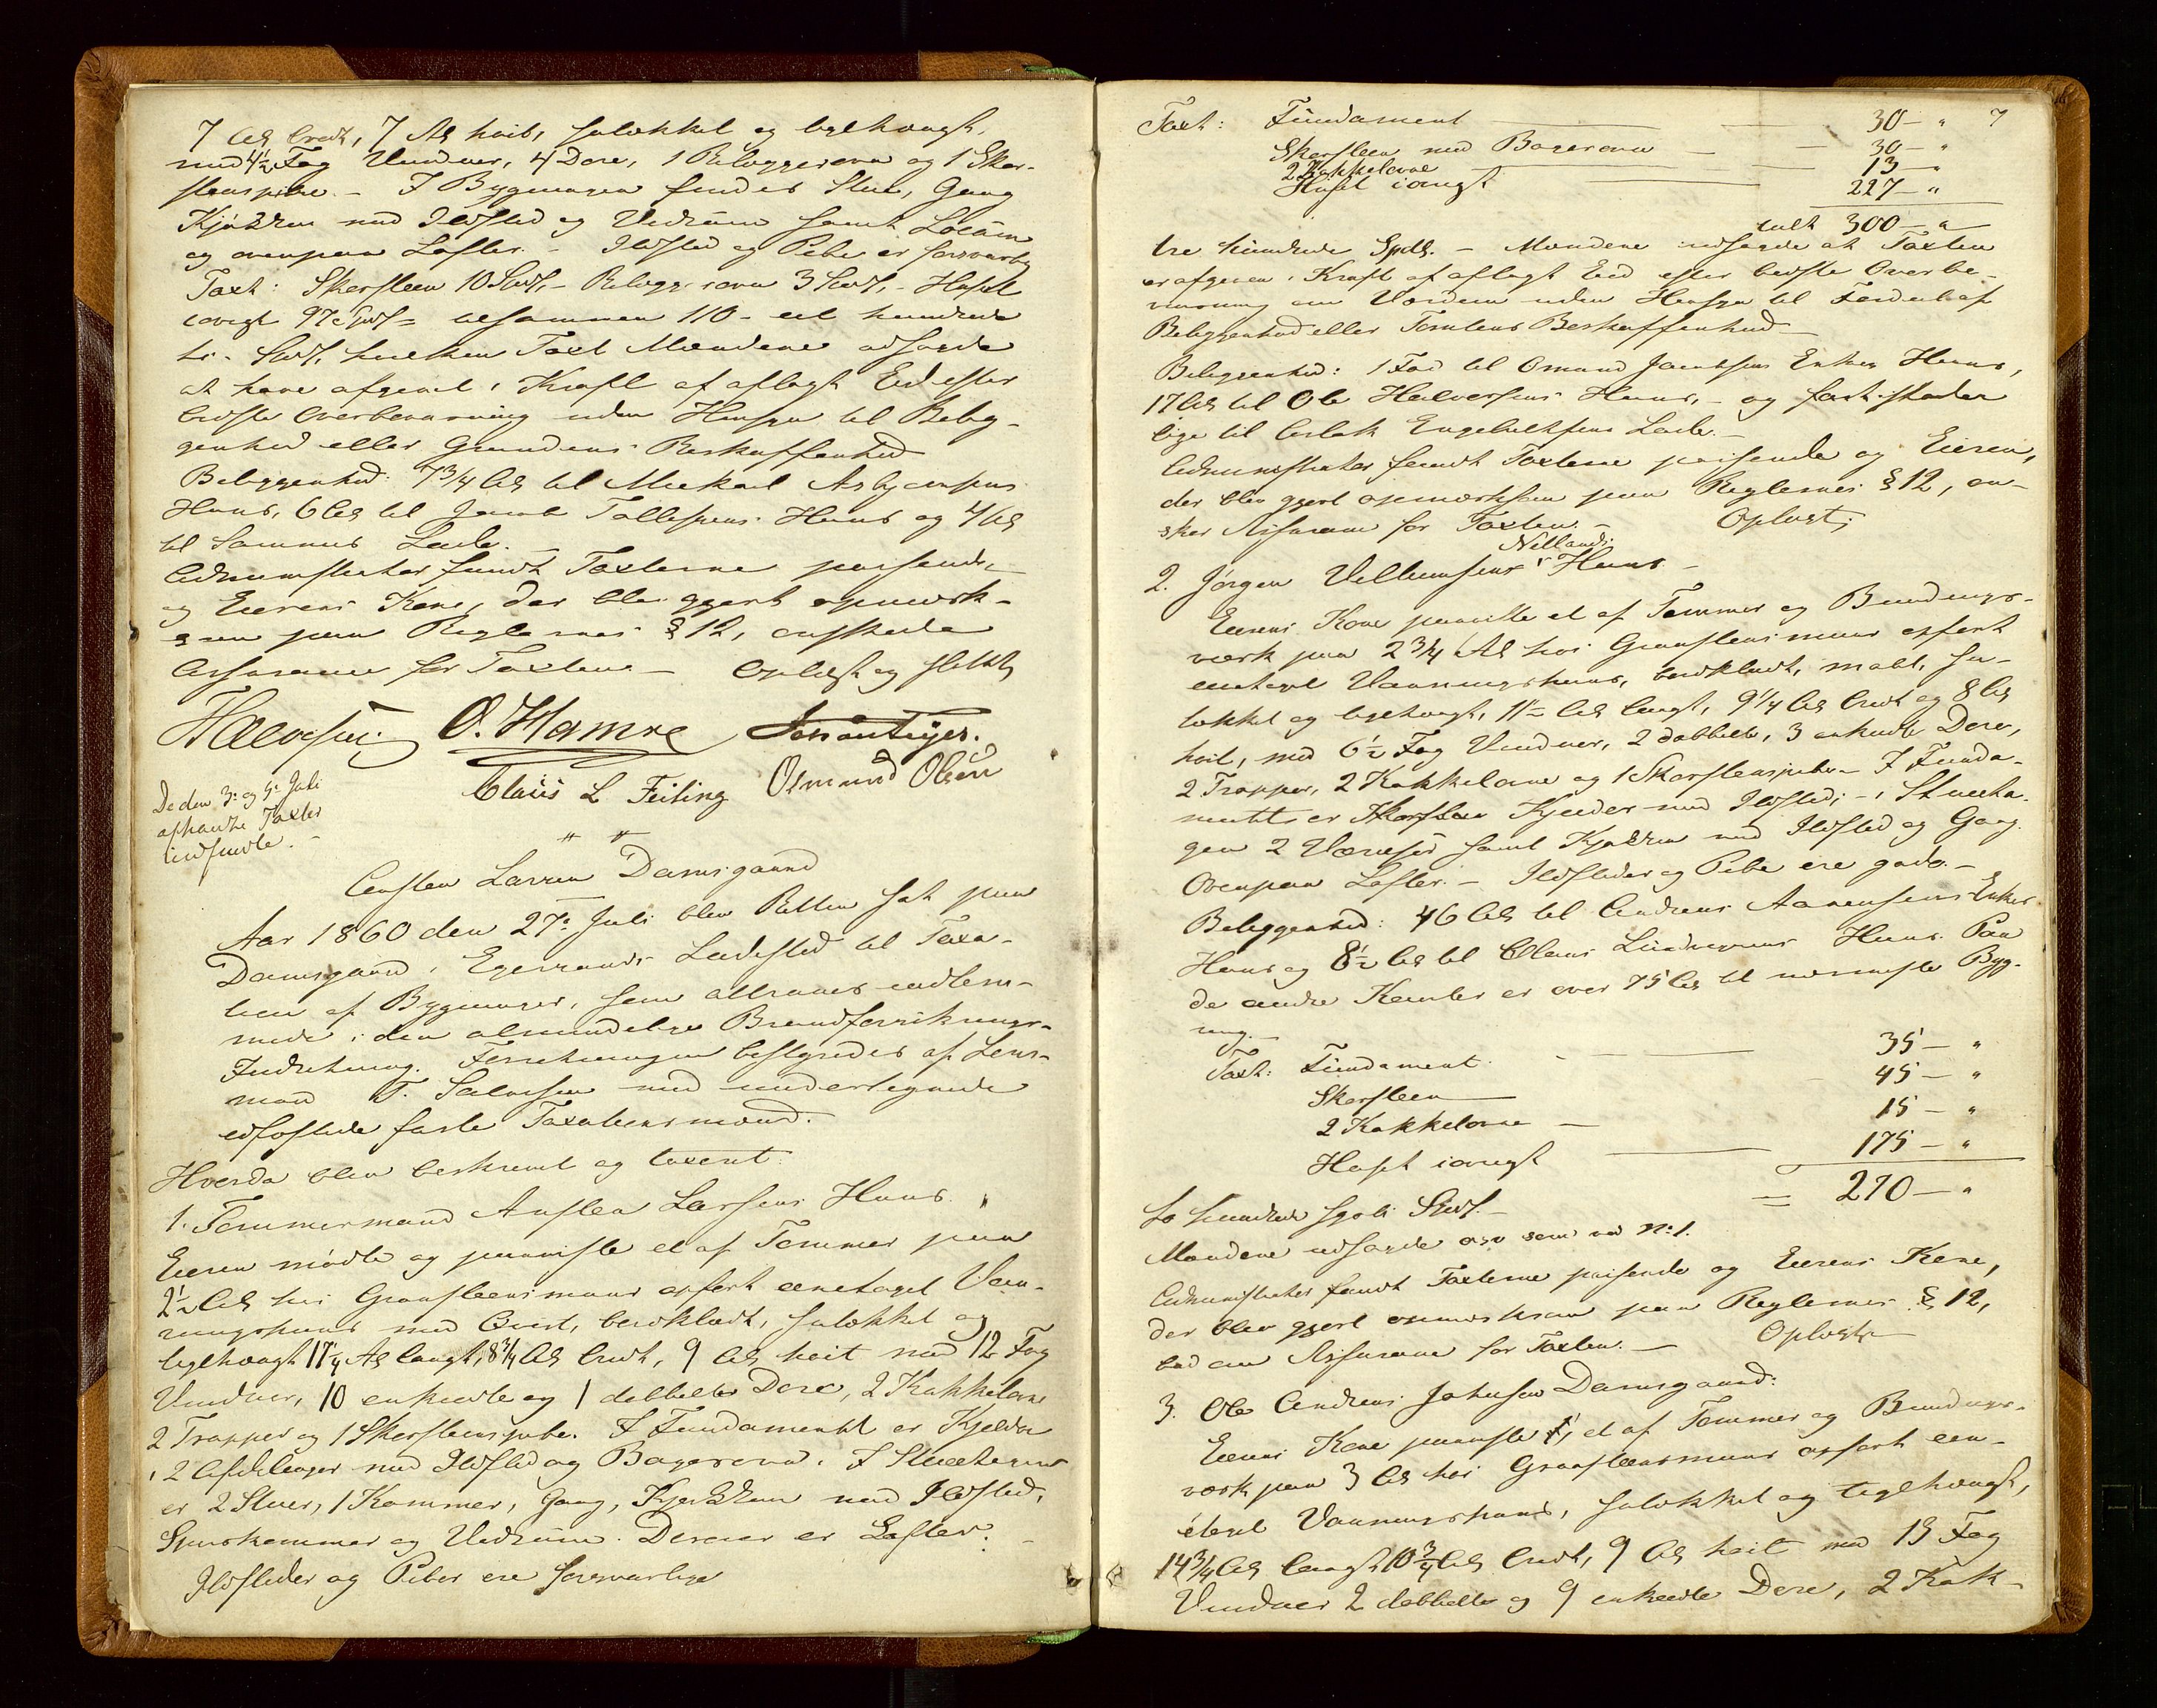 7 Al. bredt, 7 Al høit, sulekket og teglhængt,
med 4½ Fag Vinduer, 4 Døre, 1 Bilæggerovn og 1 Skor-
stenspibe. – I Bygningen findes Stue, Gang
Kjøkken med Ildsted og Vedrum samt
og ovenpaa Lofter. – Ildsted og Pibe er forsvarlig
Taxt: Skorsteen 10 Spd, – Bilæggerovn 3 Spd, – Huset
iøvrigt 97 Spd = tilsammen 110 – eet hundrede
ti – Spd, hvilken Taxt Mændene udsagde
at have afgivet i Kraft af aflagt Eed efter
bedste Overbeviisning uden Hensyn til Belig-
genhed eller Grundens Beskaffenhed
Beliggenhed: 7¾ Al. til Mickal Asbjørnsens
Huus, 6 Al. til Jacob Tollefsens Huus og 4 Al.
til Sammes Lade. –
Administrator fandt Taxterne passende
og Eierens Kone, der blev gjort opmærk-
som paa Reglernes § 12, ønskede
Assurance for Taxterne – Oplæst og sluttet
Halvorsen O. Hamre Jonas
Claus L. Feiling Osmund Olsen
De den 3: og 4: Juli
afholdte Taxter
indsendte. –
" "
Austen Larsen Damsgaard
Aar 1860 den 27: Juli blev Retten sat paa
Damsgaard i Egersunds Ladested til Taxa-
tion af Bygninger, som attraaes indlem-
mede i den almindelige Brandforsikrings-
Indretning. Forretningen bestyredes af Lens-
mand T. Salvesen med undertegnede
edfæstede faste Taxationsmænd.
Hvorda blev beskrevet og taxeret:
1. Tømmermand Austen Larsens Huus.
Eieren mødte og paaviste et af Tømmer paa
2½ Al. høi Graasteensmuur opført eenetages Vaa-
ningshuus med Qvist, bordklædt, sulekket og
teglhængt 11¼ Al. langt, 8¾ Al. bredt, 9 Al. høit med 12 Fag
Vinduer, 10 enkelte og 1 dobbelte Døre, 2 Kakkelovne
2 Trapper og 1 Skorsteenspibe. I Fundamentet er Kjelder
i 2 Afdelinger med Ildsted og Bagerovn. I Stueetagen
er 2 Stuer, 1 Kammer, Gang, Kjøkken med Ildsted,
Spiiskammer og Vedrum. Derover er Lofter. –
Ildsteder og Piber ere forsvarlige
7
Taxt: Fundament 30 – "
Skorsteen med Bagerovn 30 – "
2 Kakkelovne 13 – "
Huset iøvrigt 227 – "
talt 300 – "
tre hundrede Spdlr. – Mændene udsagde at Taxten
er afgiven i Kraft af aflagt Eed efter bedste Overbe-
viisning om Værdien uden Hensyn til
Beliggenhed eller Tomtens Beskaffenhed
Beliggenhed: 1 Fod til Omund Jacobsens Enkes Huus,
17 Al. til Ole Halvorsens Huus, – og
lige til Aslak Engebretsens Lade. –
Administrator fandt Taxterne passende og Eieren,
der blev gjort opmærksom paa Reglernes § 12, øn-
sker Assurance for Taxten. – Oplæst;
2. Jørgen Villumsens Netlands Huus –
Eierens Kone paaviste et af Tømmer og Bindings-
værk paa 2¾ Al høi Graasteensmuur opført
eenetages Vaaningshuus, bordklædt, malt, su-
lekket og teglhængt, 11½ Al. langt, 9¼ Al. bredt og 8 Al.
høit, med 6½ Fag Vinduer, 2 dobbelte, 3 enkelte Døre,
2 Trapper, 2 Kakkelovne og 1 Skorsteenspibe – I Funda-
mentet er Kjelder med Ildsted; – i Stueeta-
gen 2 Værelser samt Kjøkken med Ildsted og Gang.
Ovenpaa Lofter. – Ildsteder og Pibe ere gode. –
Beliggenhed: 46 Al. til Andreas Aanensens Enkes
Huus og 8½ Al. til Claus Huus. Paa
de andre Kanter er over 75 Al. til nærmeste Byg-
ning. –
Taxt: Fundament 35 – "
Skorsteen 45 – "
2 Kakkelovne 15 – "
Huset iøvrigt 175 – "
= 270 – "
to hundrede sytti Spd. –
Mændene udsagde osv som ved No 1.
Administrator fandt Taxterne passende og Eierens Kone,
der blev gjort opmærksom paa Reglernes § 12,
bad om Assurance for Taxten. – Oplæst
3. Ole Andreas Johnsen Damsgaard:
Eierens Kone paaviste 1, et af Tømmer og Bindings-
værk paa 3 Al. høi Graasteensmuur opført een-
etages Vaaningshuus, sulekket og teglhængt,
14¾ Al. langt 10¾ Al. bredt, 9 Al. høit med 13 Fag
Vinduer 2 dobbelte og 9 enkelte Døre, 2 Kak-